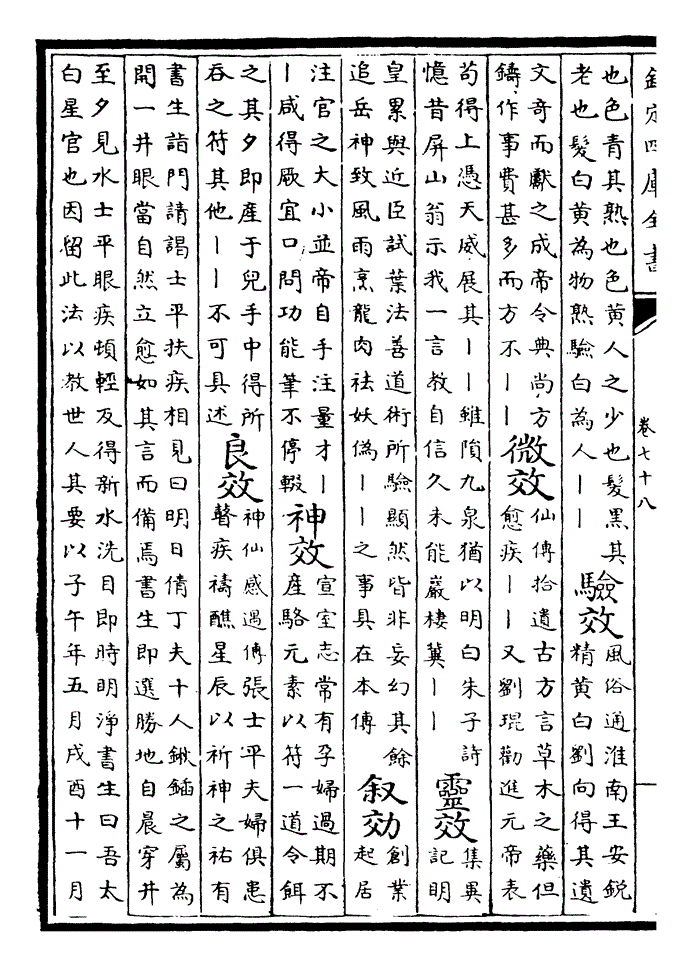 欽定四庫全書
卷七十八
也色青其熟也色黄人之少也髮黒其
老也髮白黄為物熟驗白為人丨丨
驗效
風俗通淮南王安鋭
精黄白劉向得其遺
文奇而獻之成帝令典尚方
鑄作事費甚多而方不丨丨
微效
仙傳拾遺古方言草木之藥但
愈疾丨丨又劉琨勸進元帝表
苟得上憑天威展其丨丨雖隕九泉猶以明白朱子詩
憶昔屏山翁示我一言教自信久未能巖棲冀丨丨
靈效
集異
記明
皇累與近臣試葉法善道術所驗顯然皆非妄幻其餘
追岳神致風雨烹龍肉祛妖偽丨丨之事具在本傳
叙効
創業
起居
注官之大小並帝自手注量才丨
丨咸得厥宜口問功能筆不停輟
神效
宣室志常有孕婦過期不
産駱元素以符一道令餌
之其夕即産于兒手中得所
吞之符其他丨丨不可具述
良效
神仙感遇傳張士平夫婦俱患
瞽疾禱醮星辰以祈神之祐有
書生詣門請謁士平扶疾相見曰明日倩丁夫十人鍬鍤之屬為
開一井眼當自然立愈如其言而備焉書生即選勝地自晨穿井
至夕見水士平眼疾頓輕及得新水洗目即時明淨書生曰吾太
白星官也因留此法以教世人其要以子午年五月戌酉十一月